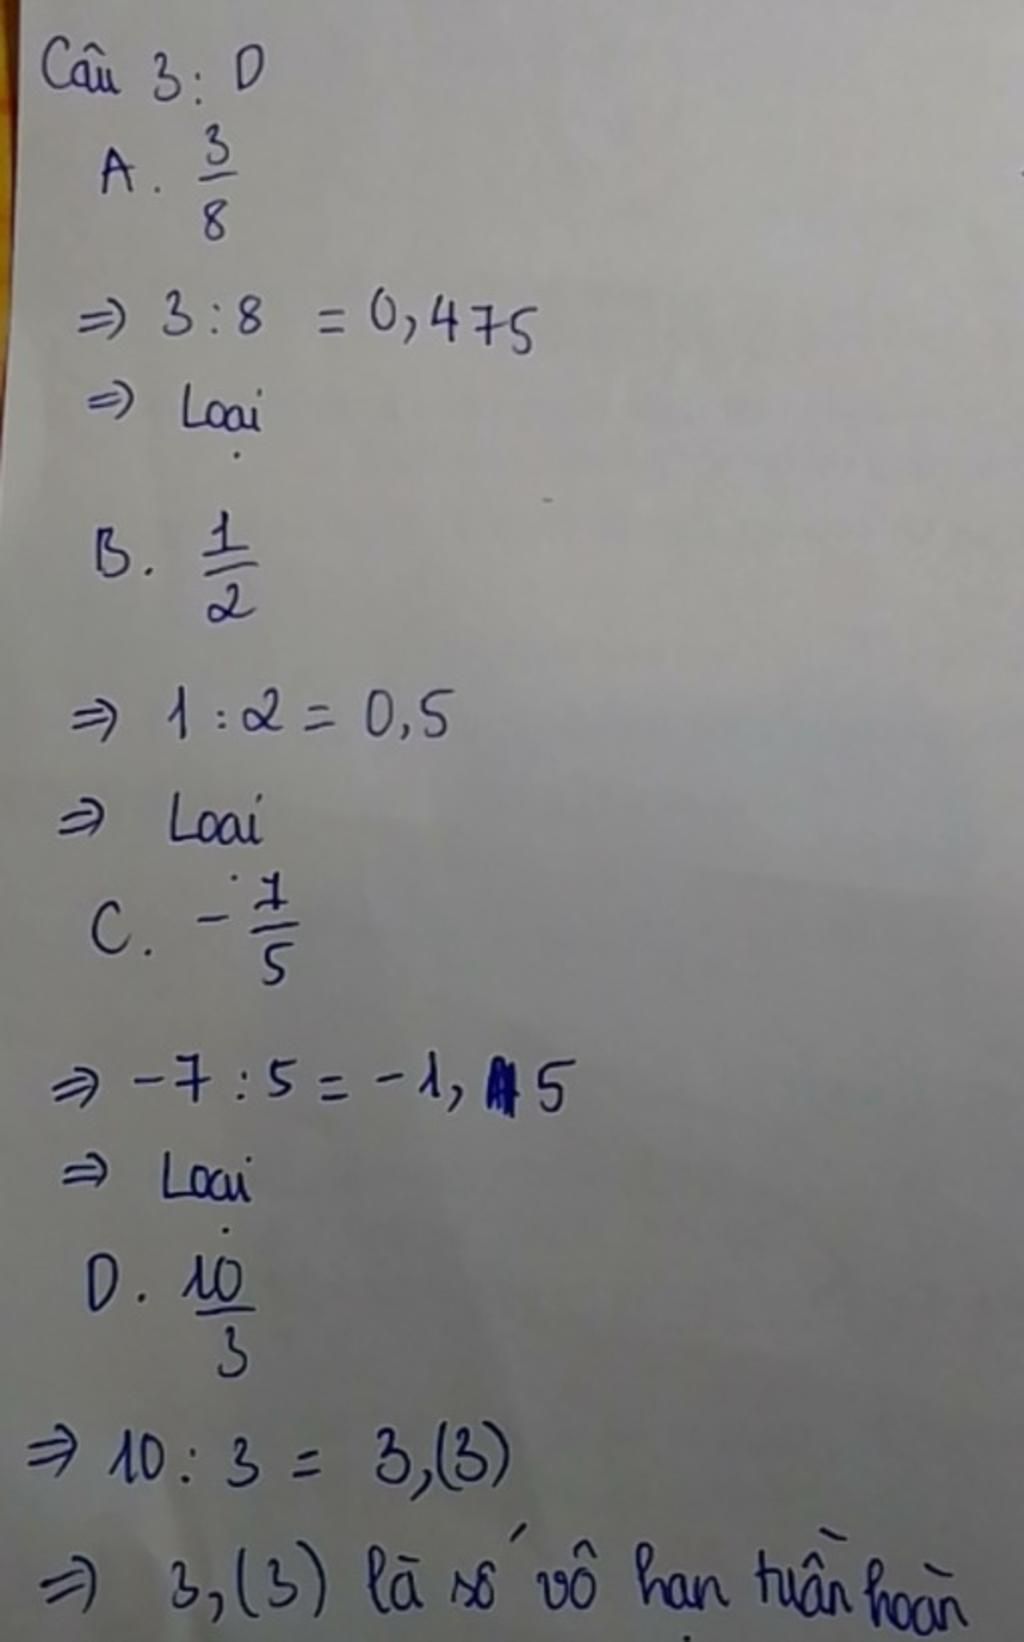 Câu 3: D
A. 3/8
⇒ 3 : 8 = 0,475
⇒ Loại
B. 1/2
⇒ 1 : 2 = 0,5
⇒ Loại
C. -7/5
⇒ -7 : 5 = -1, 5
⇒ Loại
D. 10/3
⇒ 10 : 3 = 3,(3)
⇒ 3,(3) là số vô hạn tuần hoàn